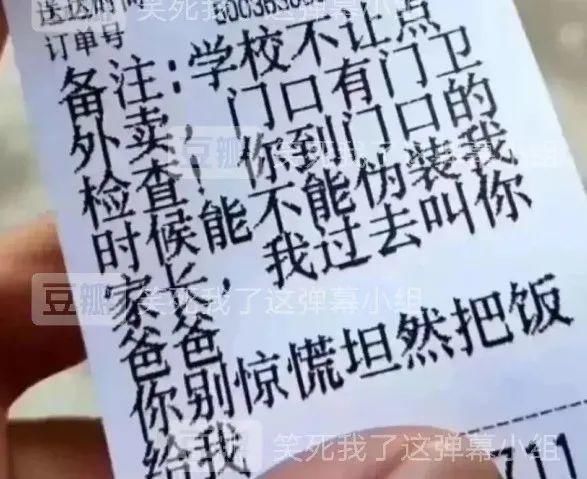 送达时间
订单号
备注:学校不让点
外卖,门口有门卫
检查!你到门口的
时候能不能伪装我
家长,我过去叫你
爸爸
你别惊慌坦然把饭
给我
711
豆瓣 笑死我了这弹幕小组
豆瓣 笑死我了这弹幕小组
豆瓣 笑死我了这弹幕小组
笑死我了这弹幕小组